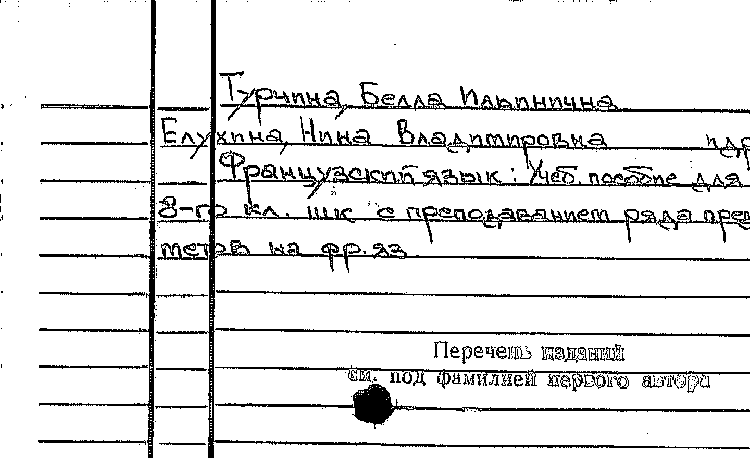 Турчина, Белла Ильинична
Елухина, Нина Владимировна и др
Французский язык: Учеб. пособие для
8-го кл. шк с преподаванием ряда пред
метов на фр. яз
Перечень изданий
см. под фамилией первого автора